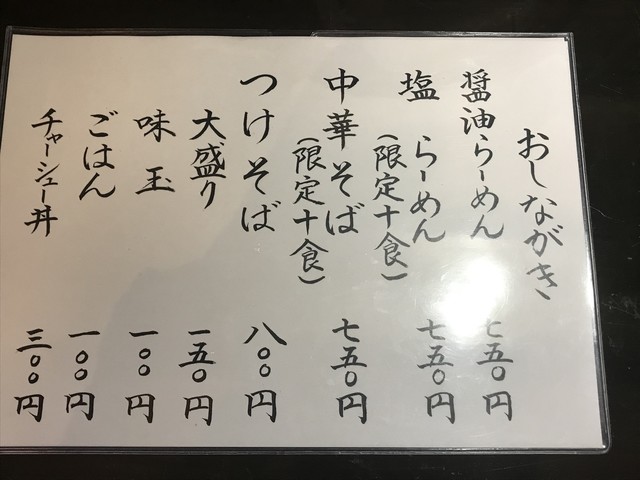 おしながき
醤油らーめん 七五〇円
塩 らーめん 七五〇円
(限定十食)
中華そば 七五〇円
(限定十食)
つけそば 八〇〇円
大盛り 一五〇円
味玉 一〇〇円
ごはん 一〇〇円
チャーシュー丼 三〇〇円